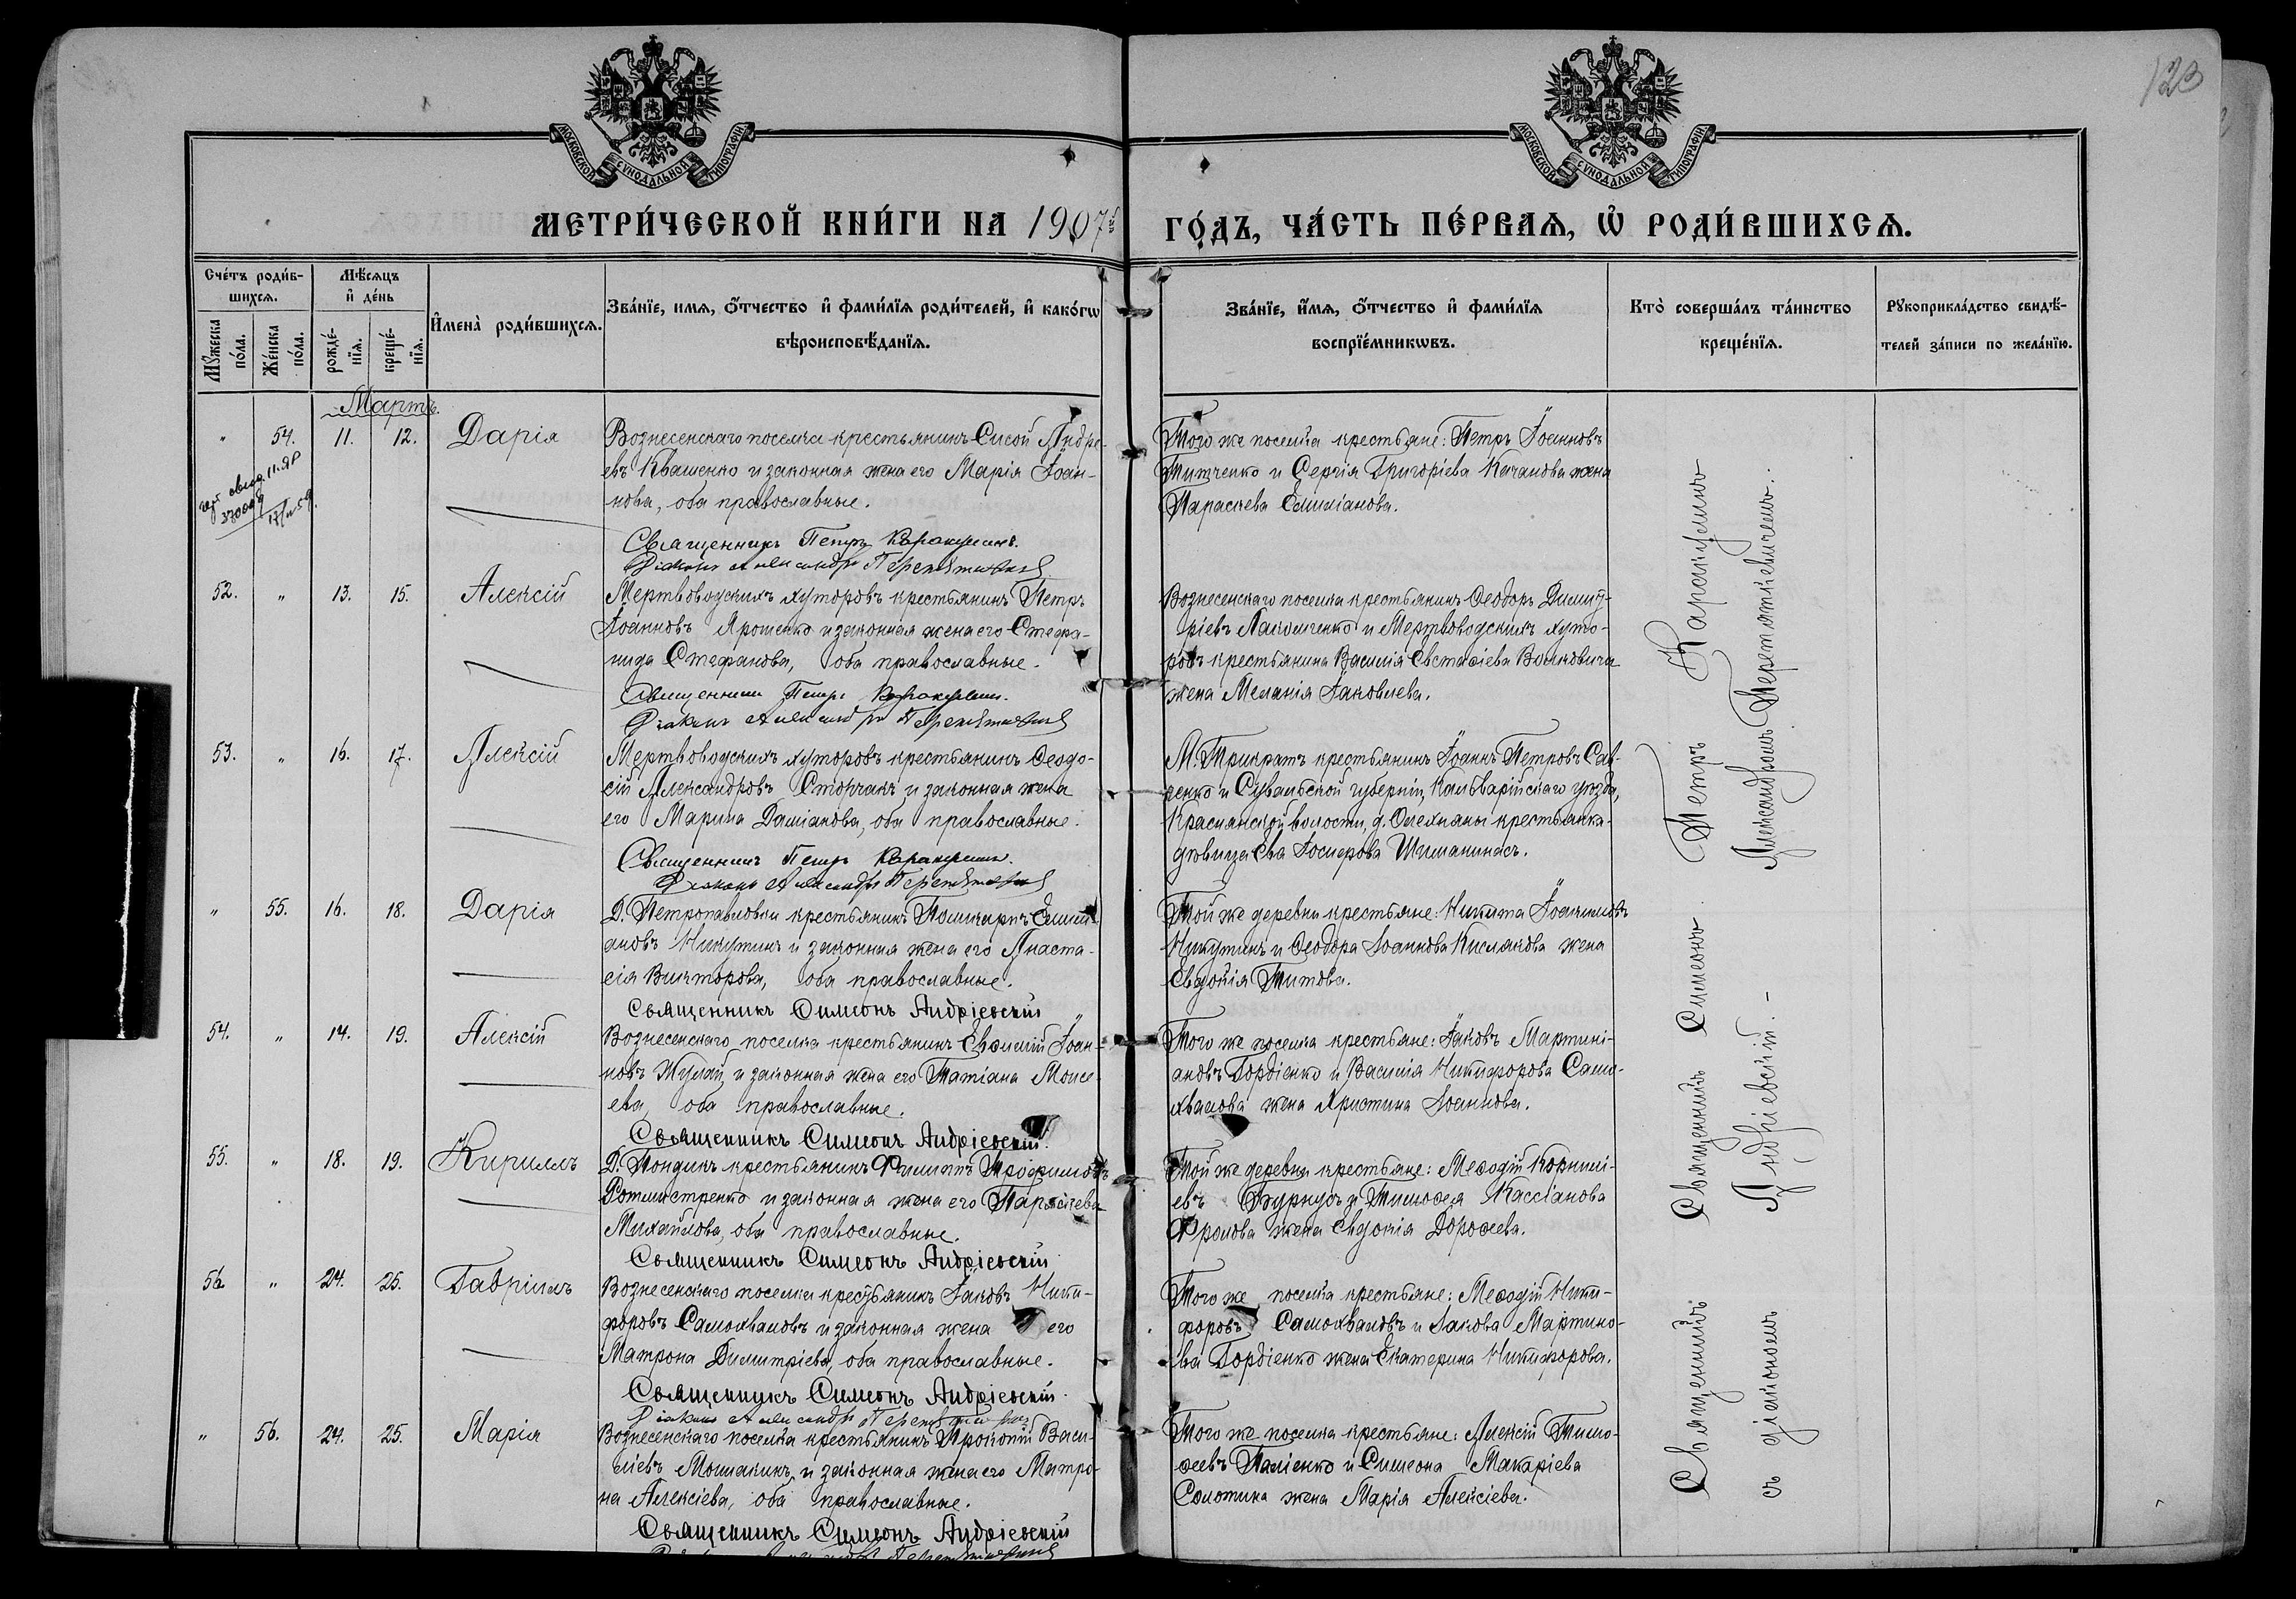 123
МОСКОВСКОЙ СѴНОДАЛЬНОЙ ТИПОГРАФІИ
МОСКОВСКОЙ СѴНОДАЛЬНОЙ ТИПОГРАФІИ
МЕТРИ́ЧЕСКОЙ КНИ́ГИ НА 1907й ГО́ДЪ, ЧА́СТЬ ПЕ́РВАѦ, Ѡ҆ РОДИ́ВШИХСѦ.
Сче́тъ роди́в-
шихсѧ.
Мꙋ́жеска по́ла.
Же́нска по́ла.
Мѣ́сѧцъ
и҆ де́нь
рожде́-
нїѧ.
креще́-
нїѧ.
И҆мена̀ роди́вшихсѧ.
Зва́нїе, имѧ, ѻ҆́тчество и҆ фами́лїѧ роди́телей, и҆ како́гѡ
вѣроисповѣ́данїѧ.
Зва́нїе, и҆́мѧ, ѻ҆́тчество и҆ фами́лїѧ
воспрїе́мникѡвъ.
Кто̀ соверша́лъ та́инство
креще́нїѧ.
Рꙋкоприкла́дство свидѣ́-
телей за́писи по жела́нїю.
Мартъ.
" 54. 11. 12. Дарія
Вознесенскаго поселка крестьянинъ Сисой Андре-
евъ Квашенко и законная жена его Марія Іоан-
нова, оба православные.
Священникъ Петръ Каракулинъ.
Діаконъ Александръ
Того же поселка крестьяне: Петръ Іоанновъ
Титченко и Сергія Григоріева Качанова жена
Параскева Емиліанова.
52. " 13. 15. Алексій
Мертвоводскихъ хуторовъ крестьянинъ Петръ
Іоанновъ Ярошенко и законная жена его Стефа-
нида Стефанова, оба православные.
Священникъ Петръ Каракулинъ.
Діаконъ Александръ
Вознесенскаго поселка крестьянинъ Ѳеодоръ Димит-
ріевъ Лакомченко и Мертвоводскихъ хуто-
ровъ крестьянина Василія Евстаѳіева Волковича
жена Меланія Іаковлева.
53. " 16. 17. Алексій
Мертвоводскихъ хуторовъ крестьянинъ Ѳеодо-
сій Александровъ Сторчакъ и законная жена
его Марина Даміанова, оба православные.
Священникъ Петръ Каракулинъ.
Діаконъ Александръ
М. Трикратъ крестьянинъ Іоаннъ Петровъ Сав-
ренко и Сувальской губерніи, Кальварійскаго уѣзда,
Краснянской волости, д. крестьянка
дѣвица Ева
" 55. 16. 18. Дарія
Д. Петропавловки крестьянинъ Поликарпъ Емили-
ановъ Никутинъ и законная жена его Анаста-
сія Викторова, оба православные.
Священникъ Симеонъ Андріевскій
Той же деревни крестьяне: Никита Іоакимовъ
Никутинъ и Ѳеодора Іоаннова Кислякова жена
Евдокія Титова.
54. " 14. 19. Алексій
Вознесенскаго поселка крестьянинъ Евѳимій Іоан-
новъ Жулай и законная жена его Татіана Моисе-
ева, оба православные.
Священникъ Симеонъ Андріевскій.
Того же поселка крестьяне: Іаковъ Мартині-
ановъ Гордіенко и Василія Никифорова Само-
хвалова жена Христина Іоаннова.
55. " 18. 19. Кириллъ
Д. Пондикъ крестьянинъ Филиппъ Трофимовъ
Ротмистренко и законная жена его Параскева
Михайлова, оба православные.
Священникъ Симеонъ Андріевскій
Той же деревни крестьяне: Меѳодій Корнилі-
евъ и Тимоѳея Кассіанова
Фролова жена Евдокія Дороѳеева.
56 " 24. 25. Гавріилъ
Вознесенскаго поселка крестьянинъ Іаковъ Ники-
форовъ Самохваловъ и законная жена его
Матрона Димитріева, оба православные.
Священникъ Симеонъ Андріевскій.
Діаконъ Александръ
Того же поселка крестьяне: Меѳодій Ники-
форовъ Самохваловъ и Іакова Мартино-
ва Гордіенко жена Екатерина Никифорова.
" 56. 24. 25. Марія
Вознесенскаго поселка крестьянинъ Прокопій Васи-
ліевъ Мошакинъ и законная жена его Матро-
на Алексіева, оба православные.
Священникъ Симеонъ Андріевскій
Того же поселка крестьяне: Алексій Тимо-
ѳеевъ Паліенко и Симеона Макаріева
Солотина жена Марія Алексіева.
Священникъ Симеонъ Петръ Каракулинъ
съ діакономъ Андріевскій. - Александромъ Перетяткевичемъ.